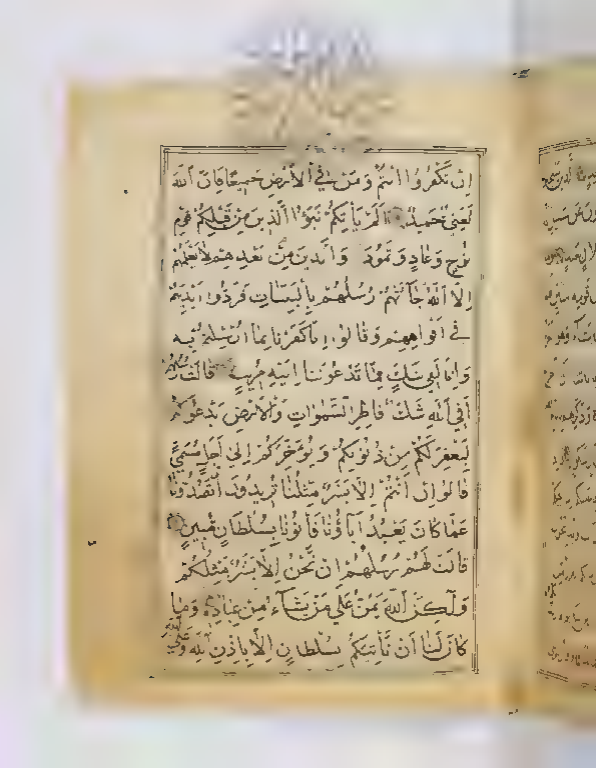 اِنْ تَكْفُرُوا اَنْتُمْ وَمَنْ فِي الْاَرْضِ جَمِيعًا فَاِنَّ اللّٰهَ
لَغَنِيٌّ حَمِيدٌ اَلَمْ يَأْتِكُمْ نَبَؤُا الَّذِينَ مِنْ قَبْلِكُمْ قَوْمِ
نُوحٍ وَعَادٍ وَثَمُودَ وَالَّذِينَ مِنْ بَعْدِهِمْ لَا يَعْلَمُهُمْ
اِلَّا اللّٰهُ جَاءَتْهُمْ رُسُلُهُمْ بِالْبَيِّنَاتِ فَرَدُّوا اَيْدِيَهُمْ
فِي اَفْوَاهِهِمْ وَقَالُوا اِنَّا كَفَرْنَا بِمَا اُرْسِلْتُمْ بِهِ
وَاِنَّا لَفِي شَكٍّ مِمَّا تَدْعُونَنَا اِلَيْهِ مُرِيبٍ قَالَتْ رُسُلُهُمْ
اَفِي اللّٰهِ شَكٌّ فَاطِرِ السَّمٰوَاتِ وَالْاَرْضِ يَدْعُوكُمْ
لِيَغْفِرَ لَكُمْ مِنْ ذُنُوبِكُمْ وَيُؤَخِّرَكُمْ اِلٰى اَجَلٍ مُسَمًّى
قَالُوا اِنْ اَنْتُمْ اِلَّا بَشَرٌ مِثْلُنَا تُرِيدُونَ اَنْ تَصُدُّونَا
عَمَّا كَانَ يَعْبُدُ اٰبَاؤُنَا فَأْتُونَا بِسُلْطَانٍ مُبِينٍ
قَالَتْ لَهُمْ رُسُلُهُمْ اِنْ نَحْنُ اِلَّا بَشَرٌ مِثْلُكُمْ
وَلٰكِنَّ اللّٰهَ يَمُنُّ عَلٰى مَنْ يَشَاءُ مِنْ عِبَادِهِ وَمَا
كَانَ لَنَا اَنْ نَأْتِيَكُمْ بِسُلْطَانٍ اِلَّا بِاِذْنِ اللّٰهِ وَعَلَى